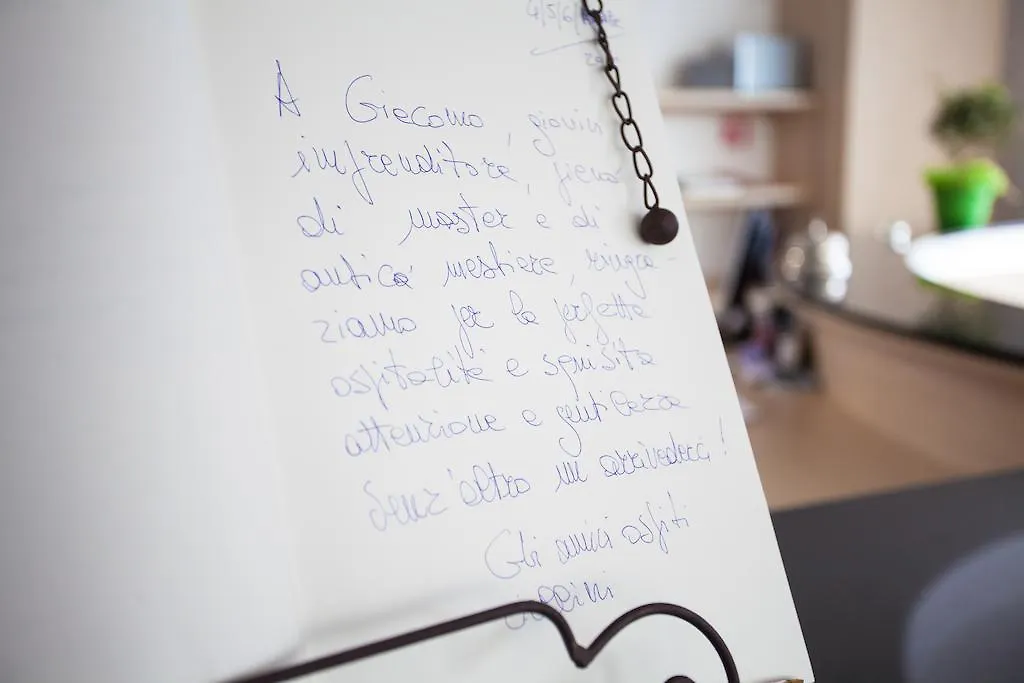 4/5/6
A Giacomo, giovin
imprenditore, pieno
di master e di
antico mestiere, ringra-
ziamo per la perfetta
ospitalità e squisita
attenzione e gentilezza
Senz'altro un arrivederci!
Gli amici ospiti